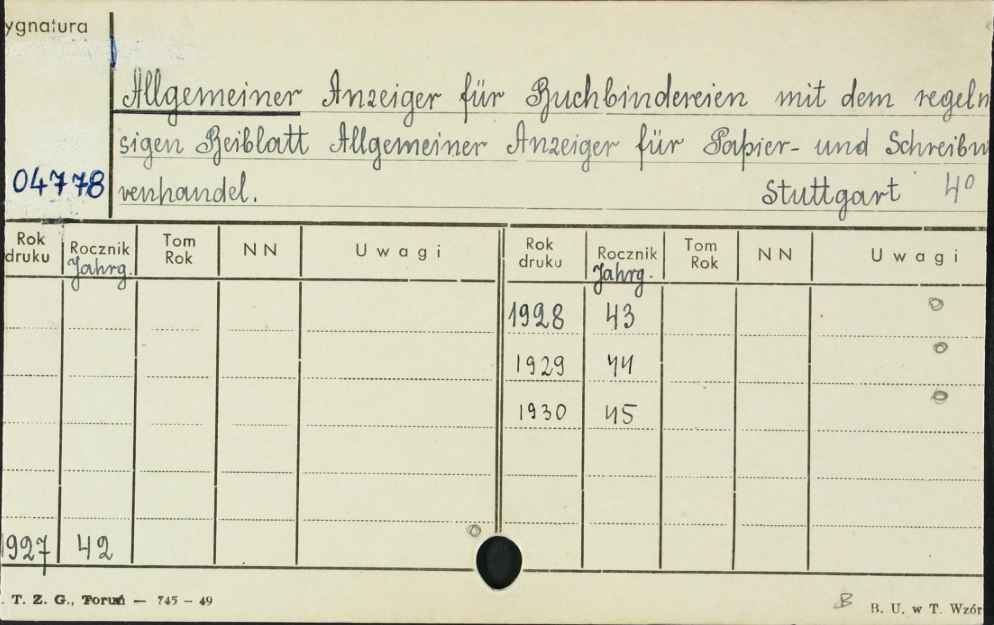 ygnatura
Allgemeiner Anzeiger für Buchbindereien mit dem regeln
sigen Beiblatt Allgemeiner Anzeiger für Papier- und Schreibw
04778 venhandel. Stuttgart 4°
Rok druku Rocznik Jahrg. Tom Rok NN Uwagi Rok druku Rocznik Jahrg. Tom Rok NN Uwagi
1928 43
1929 44
1930 45
927 42
. T. Z. G., Toruń — 745 – 49 B B. U. w T. Wzór